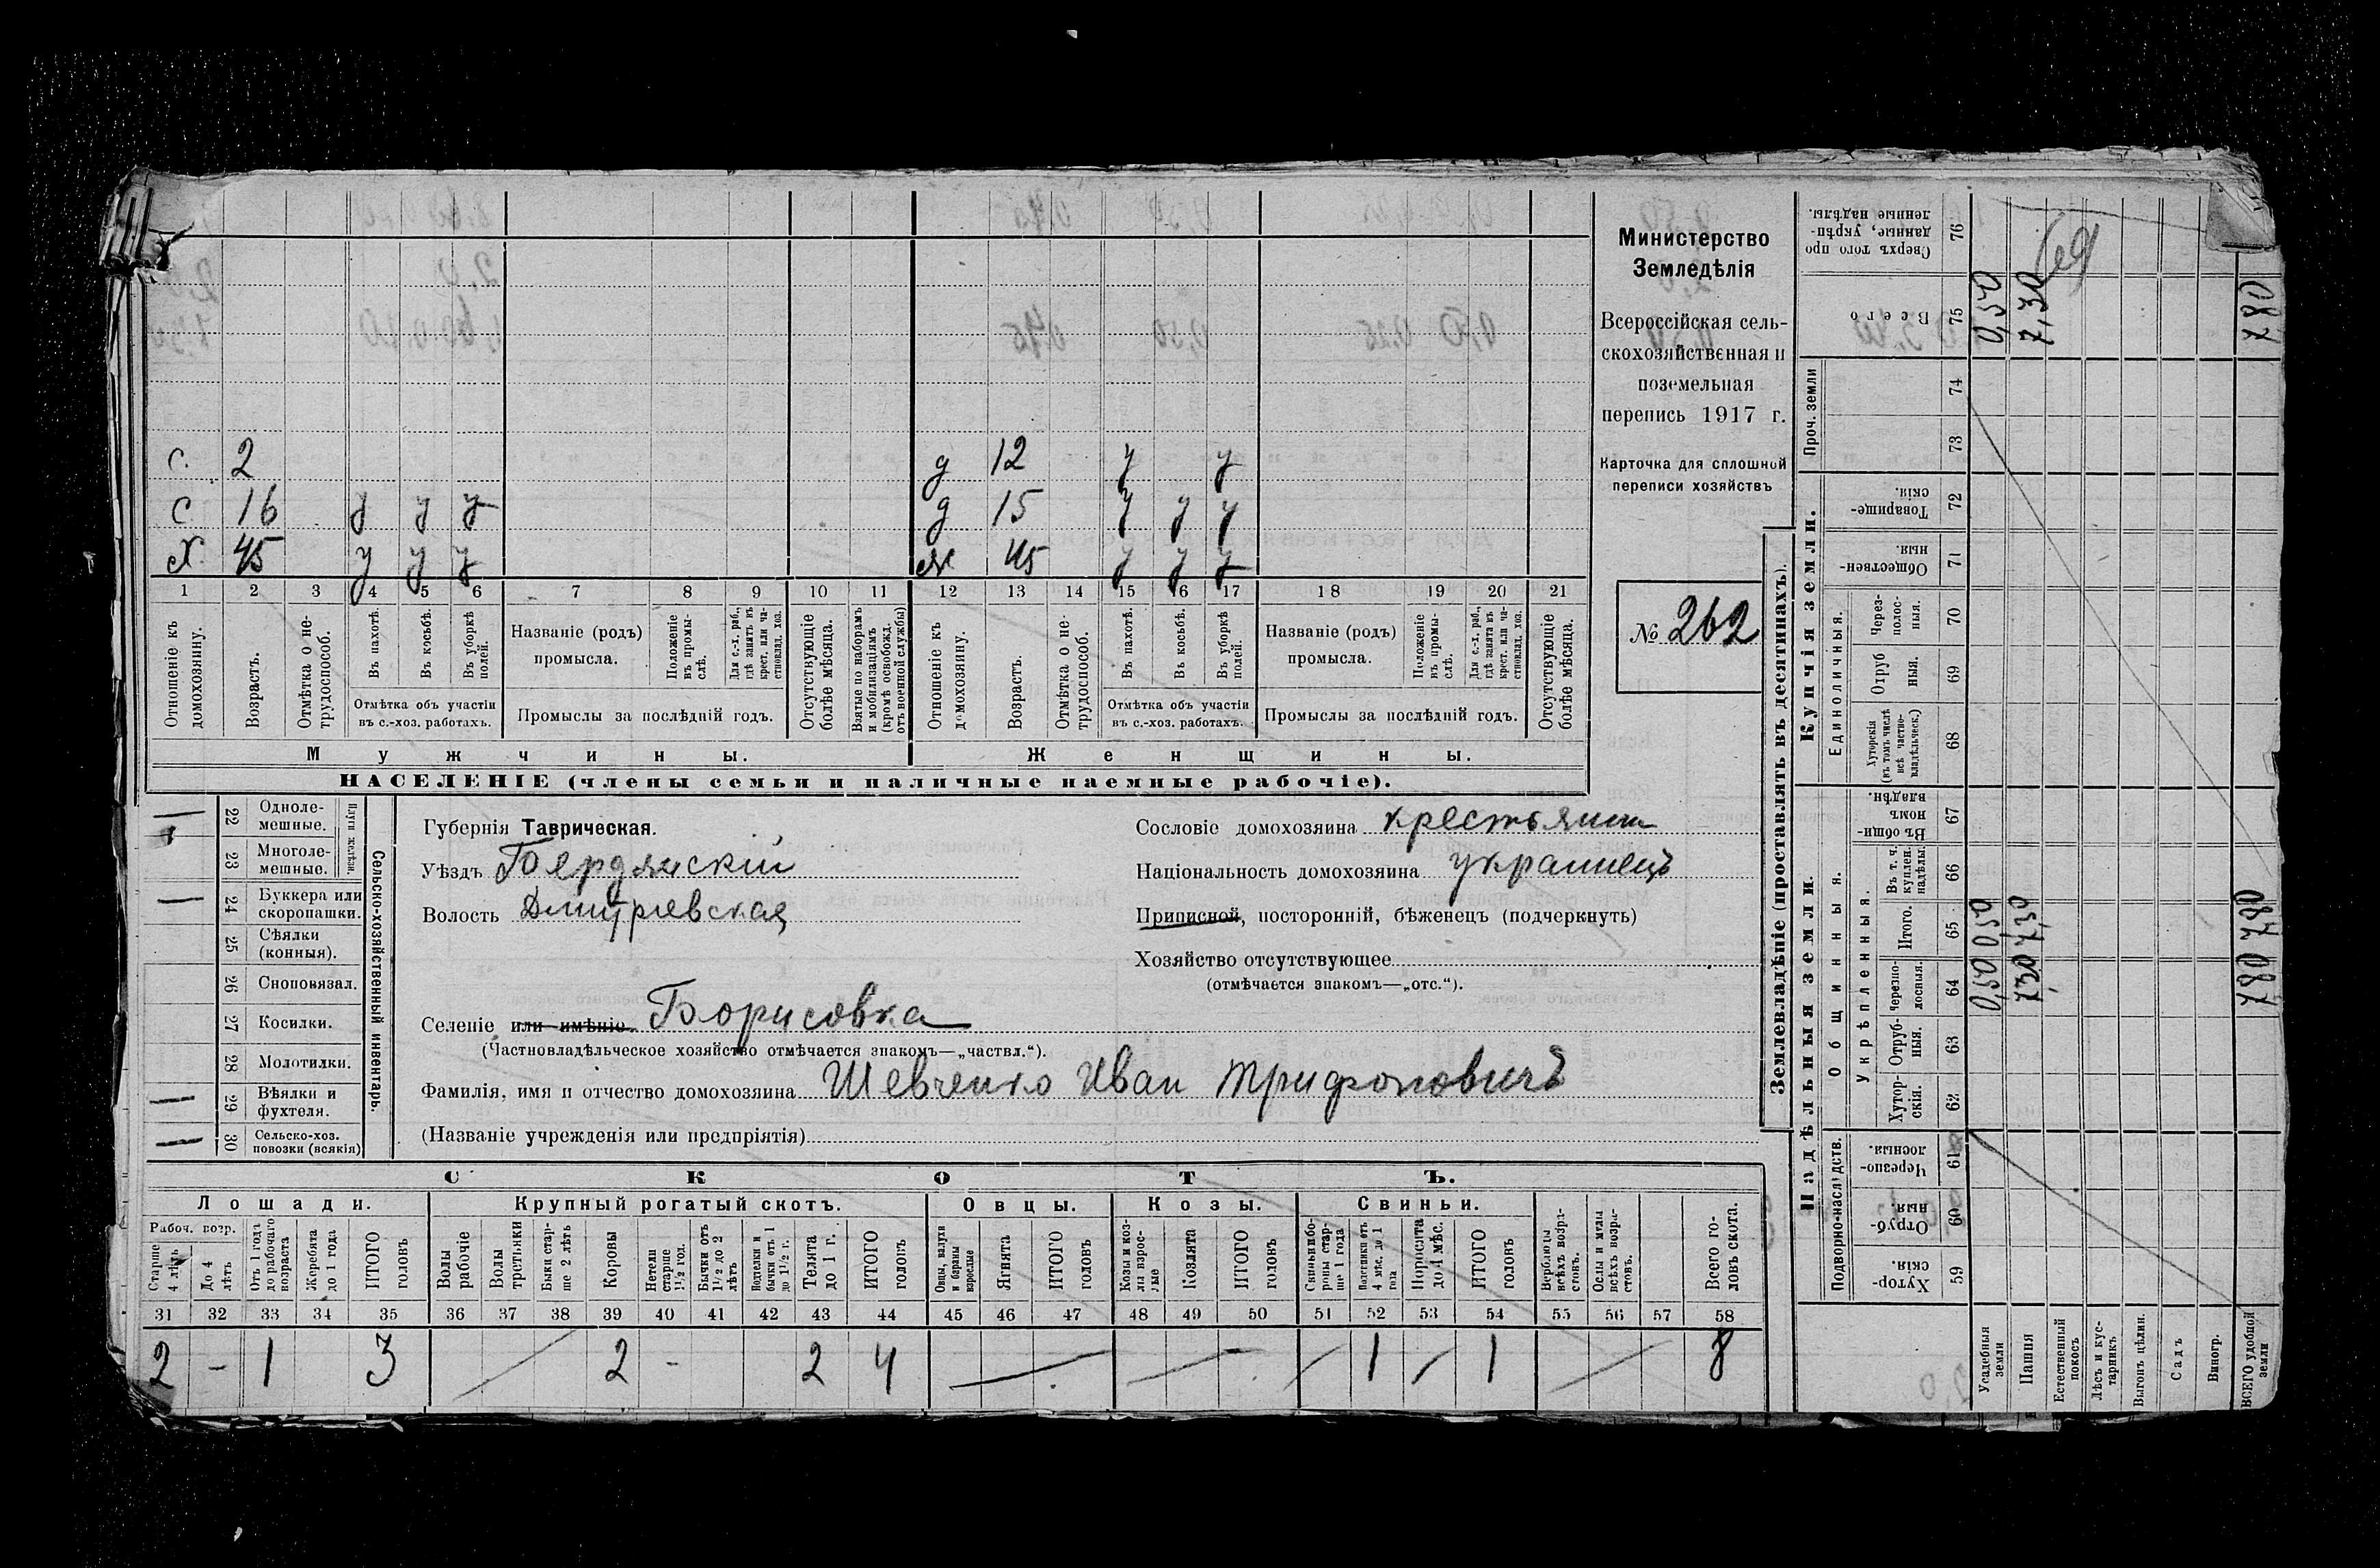 с. 2 д 12 у у
с 16 у у у д 15 у у у
х. 45 у у у ж 45 у у у
1 2 3 4 5 6 7 8 9 10 11 12 13 14 15 16 17 18 19 20 21
Отношеніе къ домохозяину.
Возрастъ.
Отмѣтка о не-
трудоспособ.
Въ пахотѣ.
Въ косьбѣ.
Въ уборкѣ
полей.
Отмѣтка объ участіи
въ с.-хоз. работахъ.
Названіе (родъ)
промысла.
Положеніе
въ промы-
слѣ.
Для с.-х. раб.,
гдѣ занятъ въ
крест. или ча-
стновлад. хоз.
Промыслы за послѣдній годъ.
Отсутствующіе
болѣе мѣсяца.
Взятые по наборамъ
и мобилизаціямъ
(кромѣ освобожд.
отъ военной службы)
Отношеніе къ
домохозяину.
Возрастъ.
Отмѣтка о не-
трудоспособ.
Въ пахотѣ.
Въ косьбѣ.
Въ уборкѣ
полей.
Отмѣтка объ участіи
въ с.-хоз. работахъ.
Названіе (родъ)
промысла.
Положеніе
въ промы-
слѣ.
Для с.-х. раб.,
гдѣ занята въ
крест. или ча-
стновлад. хоз.
Промыслы за послѣдній годъ.
Отсутствующіе
болѣе мѣсяца.
Мужчины. Женщины.
НАСЕЛЕНІЕ (члены семьи и наличные наемные рабочіе).
Министерство
Земледѣлія
Всероссійская сель-
скохозяйственная и
поземельная
перепись 1917 г.
Карточка для сплошной
переписи хозяйствъ
№ 262
Сельско-хозяйственный инвентарь.
Плуги желѣзн.
22 Одноле-
мешные.
23 Многоле-
мешные. 1
24 Буккера или
скоропашки.
25 Сѣялки
(конныя).
26 Сноповязал.
27 Косилки.
28 Молотилки.
29 Вѣялки и
фухтеля.
30 Сельско-хоз.
повозки (всякія)
Губернія Таврическая.
Уѣздъ Бердянскій
Волость Дмитріевская
Сословіе домохозяина крестьянин
Національность домохозяина украинецъ
Приписной, посторонній, бѣженецъ (подчеркнуть)
Хозяйство отсутствующее
(отмѣчается знакомъ—„отс.“).
Селеніе или имѣніе Борисовка
(Частновладѣльческое хозяйство отмѣчается знакомъ—„частвл.“).
Фамилія, имя и отчество домохозяина Шевченко Иван Трифоновичъ
(Названіе учрежденія или предпріятія)
СКОТЪ.
Лошади. Крупный рогатый скотъ. Овцы. Козы. Свиньи.
Рабоч. возр.
Старше
4 лѣтъ
До 4
лѣтъ
Отъ 1 года
до рабочаго
возраста
Жеребята
до 1 года
ИТОГО
головъ
Волы
рабочіе
Волы
третьяки
Быки стар-
ше 2 лѣтъ
Коровы
Нетели
старше
1½ год.
Бычки отъ
1½ до 2
лѣтъ
бычки отъ 1
до 1½ г.
Телята
до 1 г.
ИТОГО
головъ
Овцы, валухи
и бараны
взрослые
Ягнята
ИТОГО
головъ
Козы и коз-
лы взрос-
лые
Козлята
ИТОГО
головъ
Свиньи и бо-
ровы стар-
ше 1 года
Подсвинки отъ
4 мѣс. до 1
года
Поросята
до 4 мѣс.
ИТОГО
головъ
Верблюды
всѣхъ возра-
стовъ.
Ослы и мулы
всѣхъ возра-
стовъ.
Всего го-
ловъ скота.
31 32 33 34 35 36 37 38 39 40 41 42 43 44 45 46 47 48 49 50 51 52 53 54 55 56 57 58
2 - 1 3 2 - 2 4 1 1 8
Землевладѣніе (проставлять въ десятинахъ).
Надѣльныя земли. Купчія земли. Проч. земли
Подворно-наслѣдств.
Общинныя.
Укрѣпленныя.
Единоличныя.
Хутор-
скія. 59
Отруб-
ныя. 60
Черезпо-
лосныя. 61
Хутор-
скія. 62
Отруб-
ныя. 63
Черезпо-
лосныя. 64
Итого. 65
Въ т. ч.
куплен.
надѣлы. 66
Въ общи-
номъ
владѣн. 67
Хуторскія
(въ томъ числѣ
всѣ частно-
владѣльческ.) 68
Отруб
ныя. 69
Через-
полос-
ныя. 70
Обществен-
ныя. 71
Товарище-
скія. 72
73
74
Всего 75
Сверхъ того про
данные, укрѣп-
ленные надѣлы. 76
Усадебныя
земли 0,50 0,50 0,50
Пашня 7,30 7,30 7,30
Естественный
покосъ
Лѣсъ и кус-
тарникъ
Выгонъ цѣлин.
Садъ
Виногр.
ВСЕГО удобной
земли 780 780 780